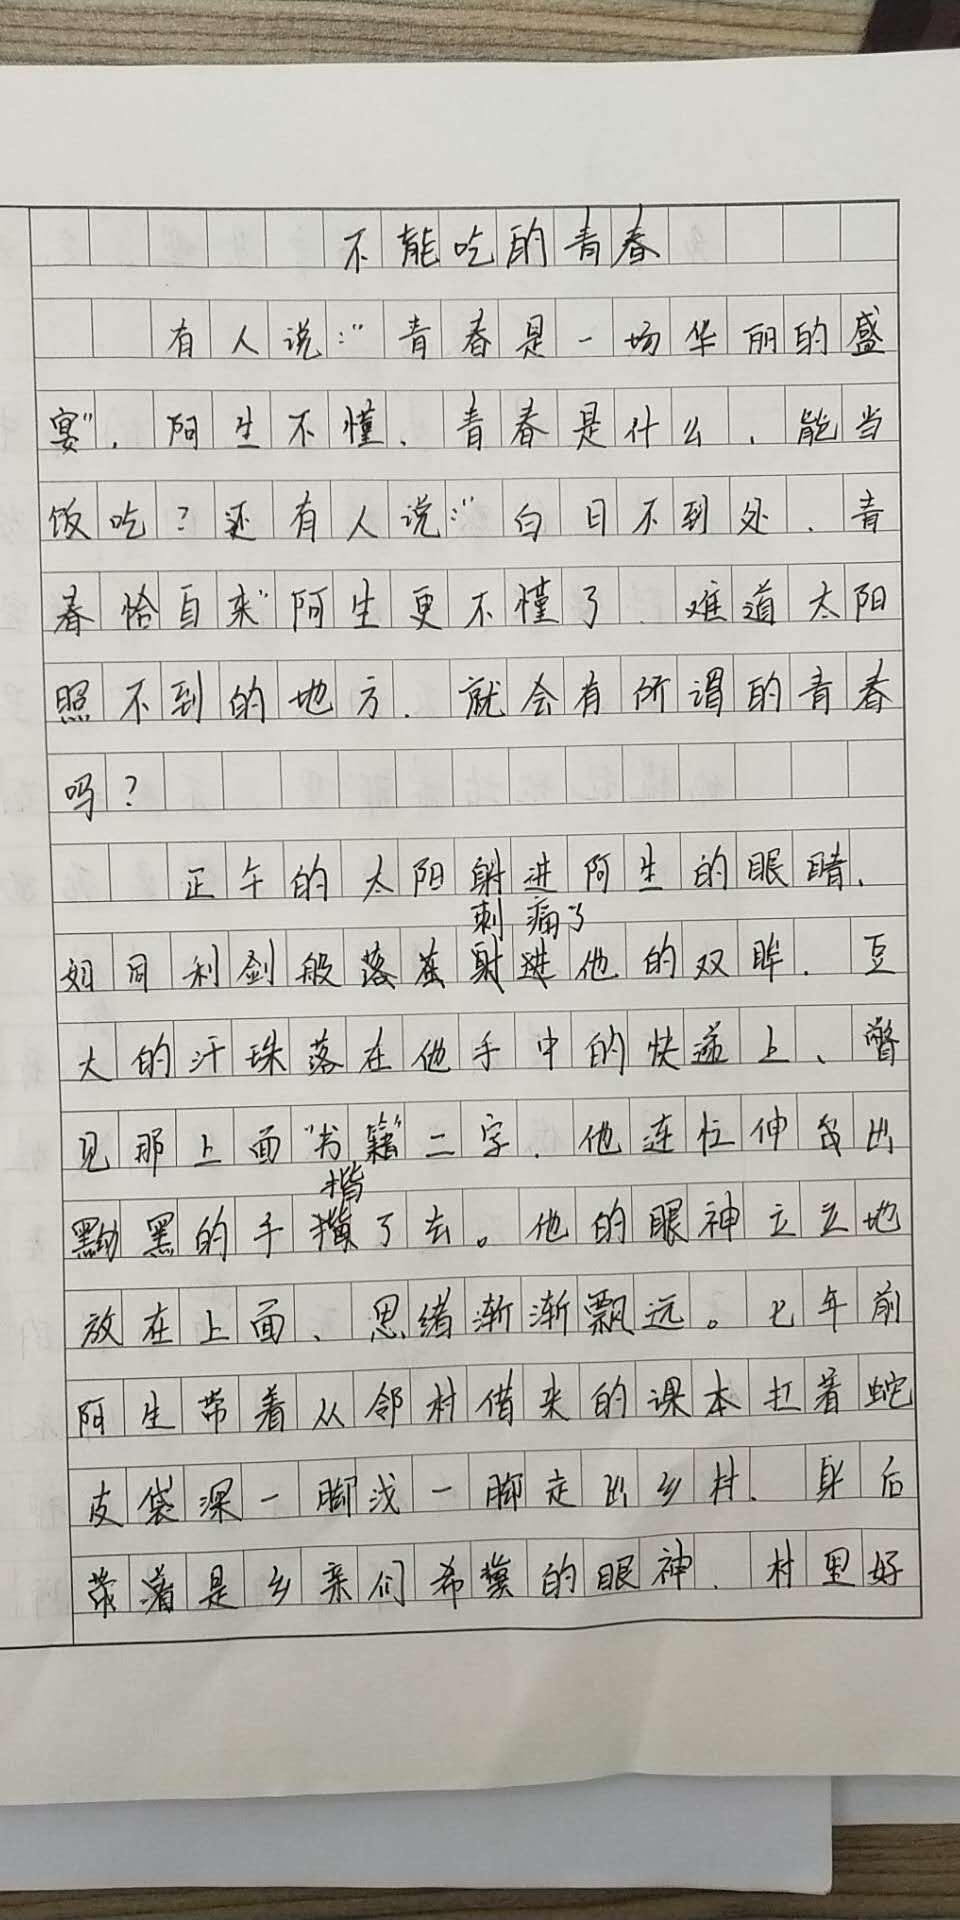 不能吃的青春
有人说:"青春是一场华丽的盛
宴",阿生不懂,青春是什么,能当
饭吃?还有人说:"白日不到处,青
春恰自来"阿生更不懂了,难道太阳
照不到的地方,就会有所谓的青春
吗?
正午的太阳射进阿生的眼睛,
刺痛了
如同利剑般落在射进他的双眸,豆
大的汗珠落在他手中的快递上、瞥
见那上面"书籍"二字,他连忙伸出
揩
黝黑的手擦了去。他的眼神立立地
放在上面、思绪渐渐飘远。七年前
阿生带着从邻村借来的课本扛着蛇
皮袋深一脚浅一脚走出乡村,身后
带着是乡亲们希冀的眼神,村里好